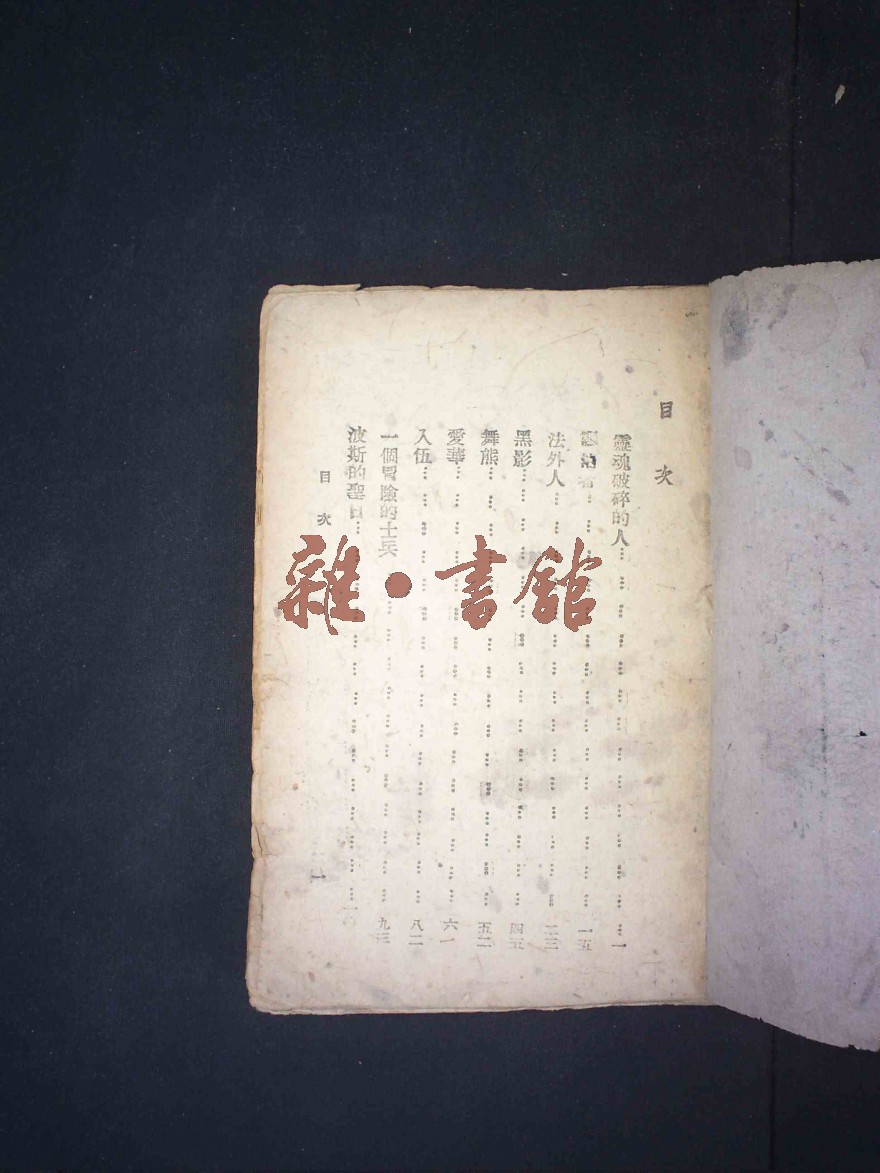 目次
靈魂破碎的人 一
者 一五
法外人 二三
黑影 四五
舞熊 五二
愛華 六一
入伍 八二
一個冒險的士兵 九三
波斯的聖日
目次
一
雜·書館